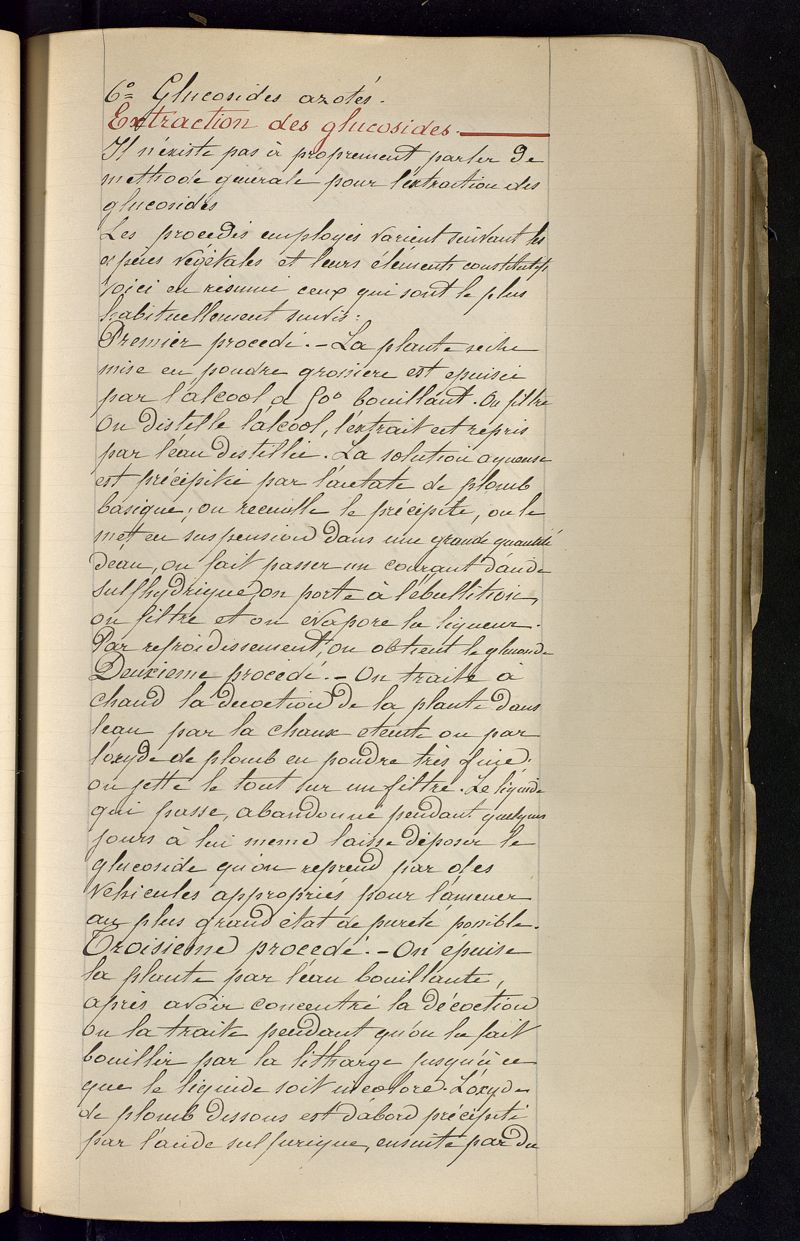 6° Glucosides azotés.
Extraction des glucosides.
Il n'éxiste pas à proprement parler de
méthode générale pour l'extraction des
glucosides
Les procedés employés varient suivant les
espèces végétales et leurs élements constitutifs
voici en résumé ceux qui sont le plus
habituellement suivis:
Premier procedé. - La plante seche
mise en poudre grossiere est epuisée
par l'alcool a 50° bouillant. On filtre
On distille l'alcool, l'extrait est repris
par l'eau distillée. La solution aqueuse
est précipitée par l'acetate de plomb
basique; on recueille le précipite, on le
mett en suspension dans une grande quantité
d'eau, on fait passer un courant d'acide
sulfhydrique, on porte à l'ébullition,
on filtre et on évapore la liqueur.
Par refroidissement, on obtient le glucoside
Deuxieme procédé. - On traite à
chaud la decoction de la plante dans
l'eau par la chaux eteinte ou par
l'oxyde de plomb en poudre très fine;
on jette le tout sur un filtre. Le liquide
qui passe, abandonné pendant quelques
jours à lui meme laisse déposer le
glucoside qu'on reprend par des
vehicules appropriés pour l'amener
au plus grand état de pureté possible.
Troisieme procedé. - On épuise
la plante par l'eau bouillante,
après avoir concentré la décoction
on la traite pendant qu'on la fait
bouillir par la litharge jusqu'à ce
que le liquide soit incolore. L'oxyde
de plomb dissous est d'abord précipité
par l'acide sulfurique, ensuite par du